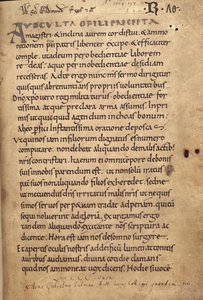 AUSCULTA O FILI PRECEPTA
magistri & inclina aurem cordis tui & ammo
nitionem pii patris libenter excipe & efficaciter
comple. ut ad eum per obedientiae laborem
redeas. a quo per inobedientiae desidiam
recesseras. Ad te ergo nunc mi sermo dirigitur
quisquis abrenuntians propriis voluntatibus
Dno xpo vero regi militaturus. obedientiae for
tissima atque preclara arma assumis. Inpri
mis ut quicquid agendum inchoas bonum
ab eo perfici instantissima oratione deposcas
ut qui nos iam in filiorum dignatus est numero
computare. non debeat aliquando de malis actibus
nris contristari. Ita enim ei omni tempore de bonis
suis in nobis parendum est. ut non solum iratus
pater suos non aliquando filios exheredet. Sed nec
ut metuendus dns irritatus malis nris ut nequis
simos servos perpetuam tradat ad penam. qui eum
sequi noluerint ad gloriam. Exurgamus ergo
tandem aliquando excitante nos scriptura ac
dicente. Hora est iam nos de somno surgere.
Et apertis oculis nostris ad deificum lumen attonitis
auribus audiamus. divina cotidie clamans
quid nos ammoneat vox dicens. Hodie si voce